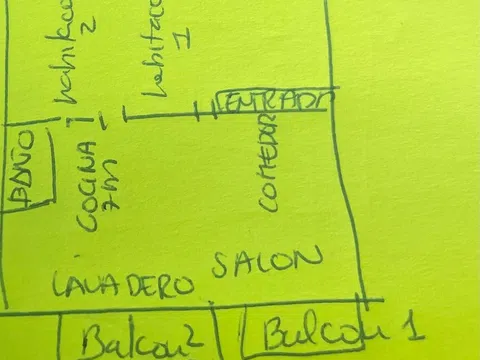 habitacio 2
habitacio 1
ENTRADA
BAÑO
COCINA
7m
COMEDOR
SALON
LAVADERO
Balcon 2
Balcon 1